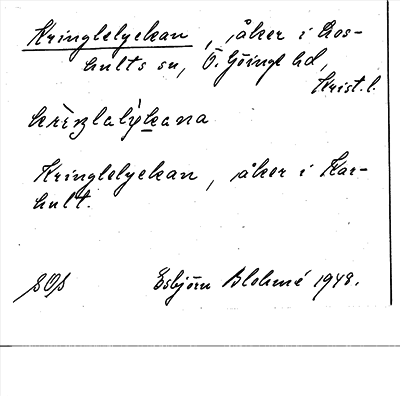 Kringlelyckan, åker i Los-
hults sn, Ö. Göinge hd,
Krist. l.
Kringlelyckan, åker i Kar-
hult.
Esbjörn Blohmé 1948.